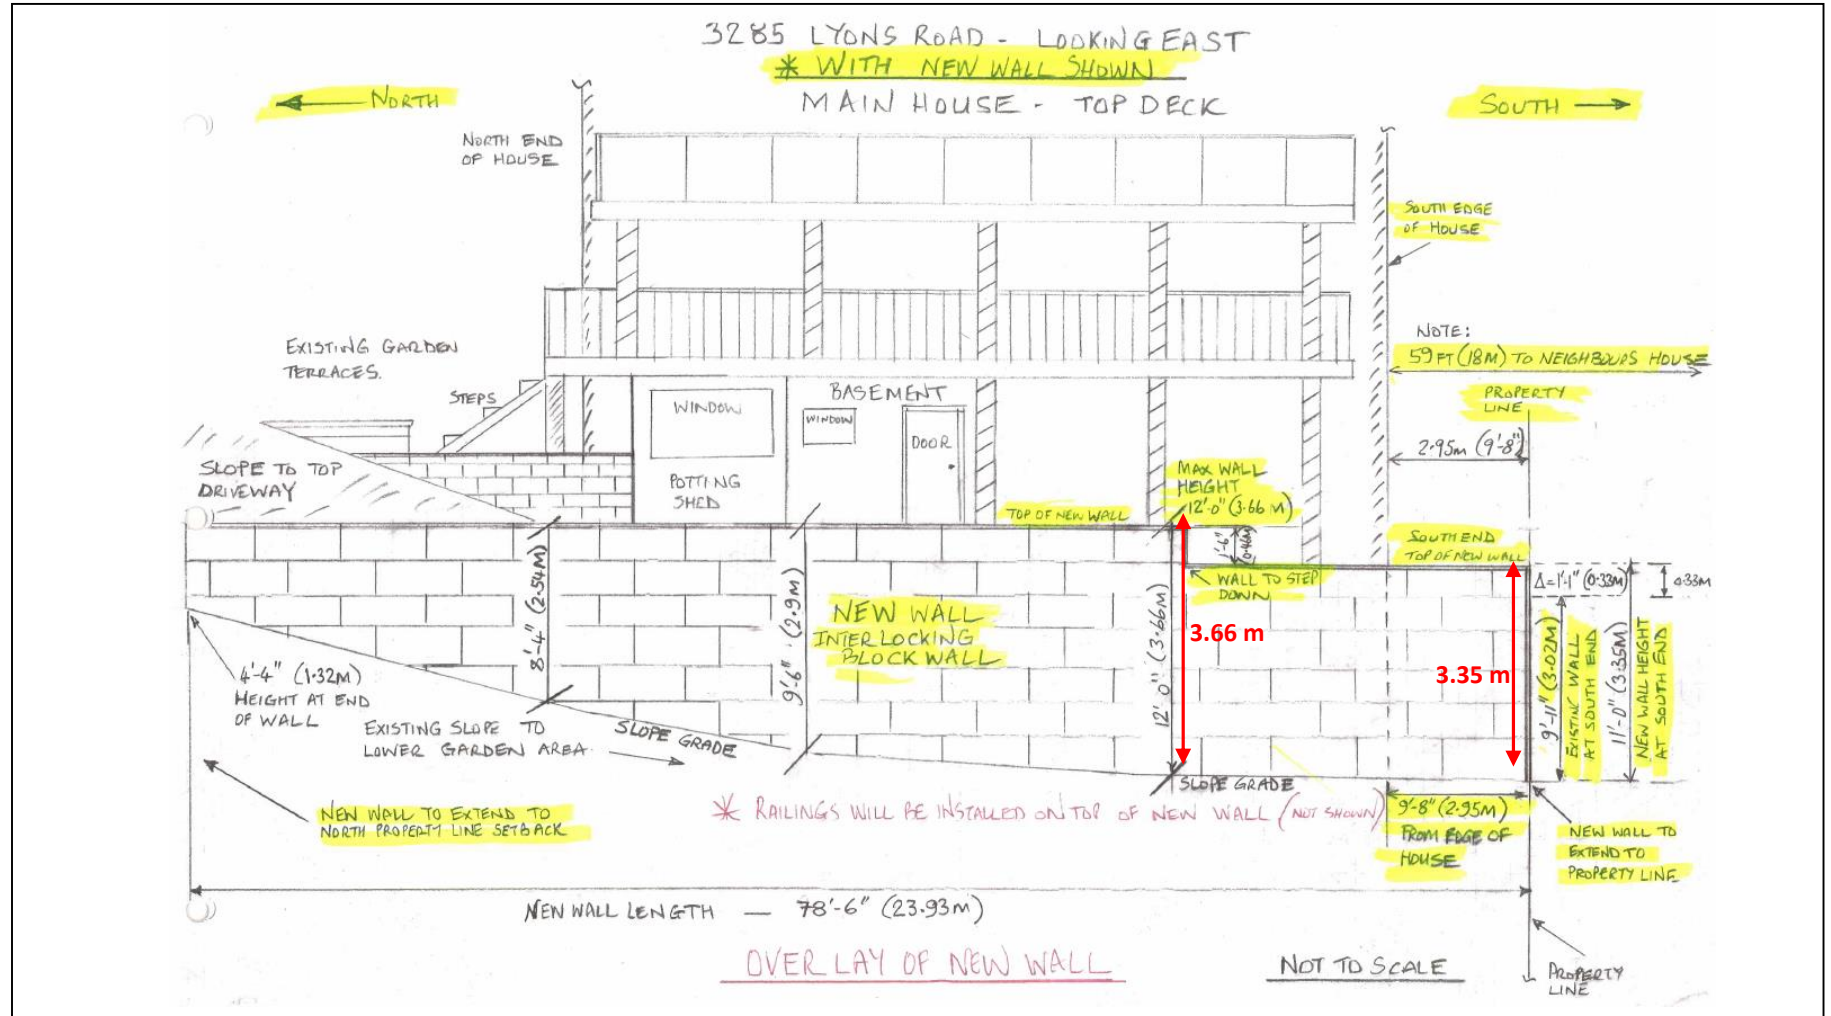 3285 LYONS ROAD - LOOKING EAST
* WITH NEW WALL SHOWN
MAIN HOUSE - TOP DECK
← NORTH
SOUTH →
NORTH END
OF HOUSE
SOUTH EDGE
OF HOUSE
NOTE:
59 FT (18M) TO NEIGHBOURS HOUSE
PROPERTY
LINE
2.95m (9'-8")
EXISTING GARDEN
TERRACES.
STEPS
SLOPE TO TOP
DRIVEWAY
WINDOW
POTTING
SHED
BASEMENT
WINDOW
DOOR
MAX WALL
HEIGHT
12'-0" (3.66 M)
TOP OF NEW WALL
1'-6"
(0.46M)
SOUTH END
TOP OF NEW WALL
WALL TO STEP
DOWN
Δ=1'-1" (0.33M)
0.33M
8'-4" (2.54M)
9'-6" (2.9M)
NEW WALL
INTERLOCKING
BLOCK WALL
12'0" (3.66M)
3.66 m
3.35 m
9'-11" (3.02M)
EXISTING WALL
AT SOUTH END
11'-0" (3.35M)
NEW WALL HEIGHT
AT SOUTH END
4'-4" (1.32M)
HEIGHT AT END
OF WALL
EXISTING SLOPE TO
LOWER GARDEN AREA.
SLOPE GRADE
SLOPE GRADE
NEW WALL TO EXTEND TO
NORTH PROPERTY LINE SETBACK
* RAILINGS WILL BE INSTALLED ON TOP OF NEW WALL (NOT SHOWN)
9'-8" (2.95M)
FROM EDGE OF
HOUSE
NEW WALL TO
EXTEND TO
PROPERTY LINE
NEW WALL LENGTH — 78'-6" (23.93M)
OVERLAY OF NEW WALL
NOT TO SCALE
PROPERTY
LINE